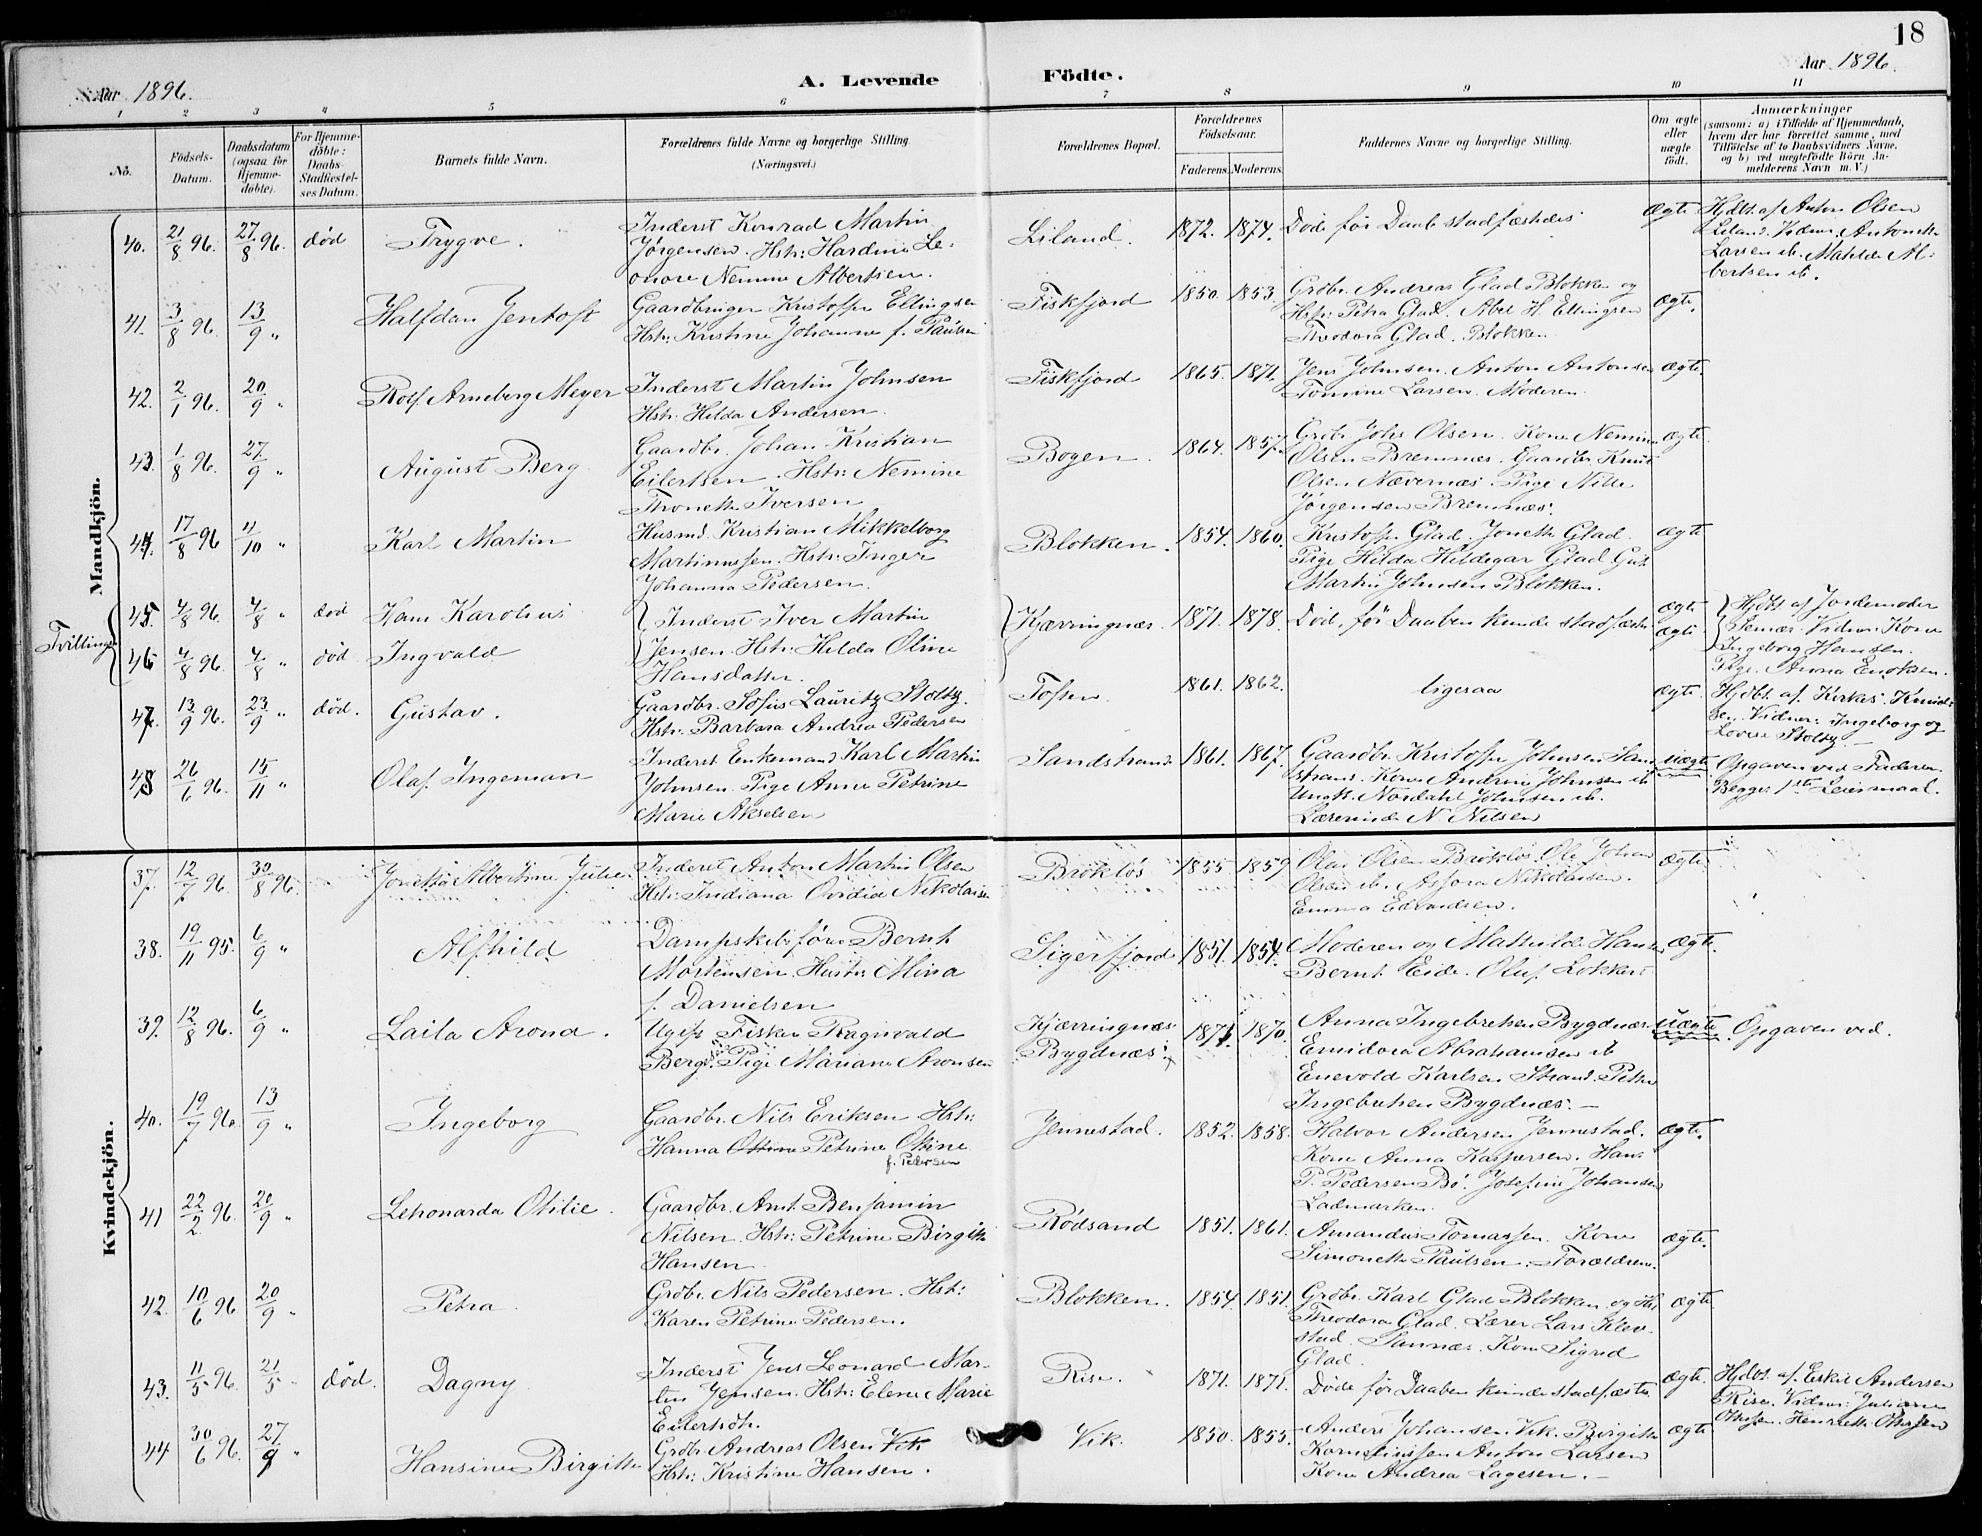 18
Aar 1896.
A. Levende Födte.
Aar 1896.
1 2 3 4 5 6 7 8 9 10 11
No.
Födsels-Datum.
Daabsdatum (ogsaa for Hjemme-døbte).
For Hjemme-døbte: Daabs-Stadfæstel-ses Datum.
Barnets fulde Navn.
Forældrenes fulde Navne og borgerlige Stilling. (Næringsvei.)
Forældrenes Bopæl.
Forældrenes Fødselsaar.
Faderens. Moderens.
Faddernes Navne og borgerlige Stilling.
Om ægte eller uægte født.
Anmærkninger
(saasom: a) i Tilfælde af Hjemmedaab,
hvem der har forrettet samme, med
Tilføielse af to Daabsvidners Navne.
og b) ved uægtefödte Börn An-
melderens Navn m. V.)
Mandkjön.
40. 21/8 96. 27/8 96. død Trygve.
Inderst Konrad Martin
Jørgensen. Hstr: Hardine Le-
onore Nemine Albertsen.
Liland. 1872. 1874. Døde før Daab stadfæstedes ægte
Hjdbt. af Anton Olsen
Liland. Vidner. Antonette
Larsen ib. Matilde Al-
bertsen ib.
41. 3/8 96. 13/9 " Halfdan Jentoft
Gaardbruger Kristoffer Ellingsen
Hstr: Kristine Johanne f. Paulsen
Fiskfjord 1850. 1853.
Grdbr. Andreas Glad Blokken og
Hstr: Petra Glad. Abel H. Ellingsen
Theodora Glad. Blokken.
ægte.
42. 2/1 96. 20/9 " Rolf Arneberg Meyer
Inderst Martin Johnsen
Hstr: Hilda Andersen.
Fiskfjord 1865. 1871.
Jens Johnsen. Anton Antonsen
Tomine Larsen. Moderen.
ægte.
43. 1/8 96. 27/9 " August Berg
Gaardbr. Johan Kristian
Eilertsen. Hstr: Nemine
Thonette Iversen
Bogen. 1864. 1857.
Grdbr Johs Olsen. Kone Nemine
Olsen Bremnæs. Gaardbr. Knut
Olsen Nævernæs. Pige Nille
Jørgensen Bremnæs.
ægte
44. 17/8 96 4/10 " Karl Martin
Husmd. Kristian Mikkelborg
Martinussen. Hstr: Inger
Johanna Pedersen.
Blokken. 1854. 1860.
Kristoffer Glad. Jonette Glad.
Pige Hilda Hildegar Glad Gut
Martin Johnsen Blokken.
ægte
Tvillinger
45. 4/8 96. 4/8 " død Hans Karolius
46 4/8 96. 4/8 " død. Ingvald
Inderst Iver Martin
Jensen. Hstr: Hilda Oline
Hansdatter.
Kjærringnæs. 1871. 1878. Død, før Daaben kunde stadfæstes
ægte
ægte
Hjdbt. af Jordemoder
Vidner. Kone
Ingeborg Hansen.
Pige. Anna Enoksen.
47. 13/9 96. 23/9 " død. Gustav.
Gaardbr. Sofus Lauritz Stoltz.
Hstr. Barbara Andrea Pedersen
Tofsen. 1861. 1862. ligesaa ægte.
Hjdbt. af. Kirkes. Knud-
sen. Vidner: Ingeborg og
Lovise Stoltz.
48 26/6 96. 15/11 " Olaf Ingeman
Inderst Enkemand Karl Martin
Johnsen. Pige Anne Petrine
Marie Akselsen
Sandstrand. 1861. 1867.
Gaardbr. Kristoffer Johnsen Sand-
strand. Kone Andrine Johnsen ib
Ungk. Nordahl Johnsen ib.
Lærerinde N Nilsen
uægte
Opgaven ved Faderen.
Begges 1ste Leiermaal.
Kvindekjön.
37. 12/7 96. 32/8 96. Jonetha Albertine Julie
Inderst Anton Martin Olsen
Hstr: Indiana Ovidia Nikolaisen
Brokløs 1855 1859
Olai Olsen Brokløs. Ole Johan
Olsen ib. Assora Nikolaisen.
Emma Edvardsen.
ægte.
38. 19/11 95. 6/9 " Alfhild
Dampskibsfører Bernt
Mortensen. Hustr: Mina
f. Danielsen
Sigerfjord 1851. 1854.
Moderen og Mathilde Hansen
Bernt Eide. Oluf Lokkert
ægte.
39. 12/8 96. 6/9 " Laila Arona.
Ugift Fisker Ragnvald
Berg. Pige Mariane Aronsen
Kjærringnæs
Bygdnæs. 1871 1870
Anna Ingebretsen Bygdnæs.
Emidora Abrahamsen ib
Enevold Karlsen Strand. Petter
Ingebretsen Bygdnæs.
uægte. Opgaven ved.
40. 19/7 96. 13/9 " Ingeborg
Gaardbr. Nils Eriksen Hstr:
Hanna Ottine Petrine Otine
f. Pedersen
Jennestad. 1852. 1858.
Halvor Andersen Jennestad.
Kone Anna Kaspersen. Hans
P. Pedersen Bø. Josefine Johansen
Ladmarken.
ægte.
41 22/2 96. 20/9 " Lehonarda Otilie.
Gaardbr. Ant. Benjamin
Nilsen. Hstr: Petrine Birgitte
Hansen.
Rødsand 1851. 1861.
Amandus Tomassen. Kone
Simonette Paulsen. Forældrene.
ægte.
42. 10/6 96 20/9 " Petra
Grdbr. Nils Pedersen. Hstr:
Karen Petrine Pedersen.
Blokken. 1854. 1851.
Grdbr. Karl Glad Blokken og Hst
Theodora Glad. Lærer Lars Klev-
stad. Sannæs. Kone Sigrid
Glad.
ægte
43. 11/5 96. 21/5 " død. Dagny
Inderst Jens Leonard Mar-
tin Jensen. Hstr: Elene Marie
Eilertsdtr.
Rise. 1871. 1871. Døde før Daaben kunde stadfæstes ægte.
Hjdbt. af. Eskil Andersen
Rise. Vidner: Juliane
Ottesen. Henrette Ottesen
44 30/6 96. 27/9 " Hansine Birgitte
Grdbr. Andreas Olsen Vik
Hstr: Kristine Hansen.
Vik. 1850. 1855.
Anders Johansen Vik. Birgitte
Korneliussen Anton Larsen
Kone Andrea Lagesen.
ægte.